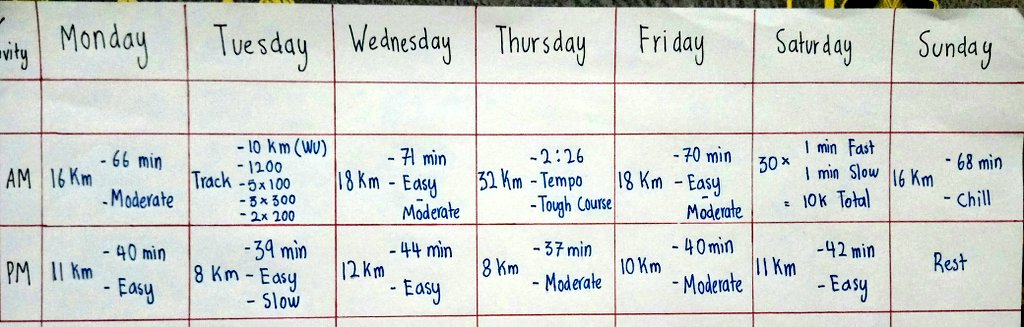 vity Monday Tuesday Wednesday Thursday Friday Saturday Sunday
AM
16 Km
- 66 min
- Moderate
Track
- 10 km (WU)
- 1200
- 5x100
- 3x300
- 2x200
18 Km
- 71 min
- Easy
-
Moderate
32 Km
- 2:26
- Tempo
- Tough Course
18 Km
- 70 min
- Easy
-
Moderate
30x
1 min Fast
1 min Slow
= 10K Total
16 Km
- 68 min
- Chill
PM
11 Km
- 40 min
- Easy
8 Km
- 39 min
- Easy
- Slow
12 Km
- 44 min
- Easy
8 Km
- 37 min
- Moderate
10 Km
- 40 min
- Moderate
11 Km
- 42 min
- Easy
Rest